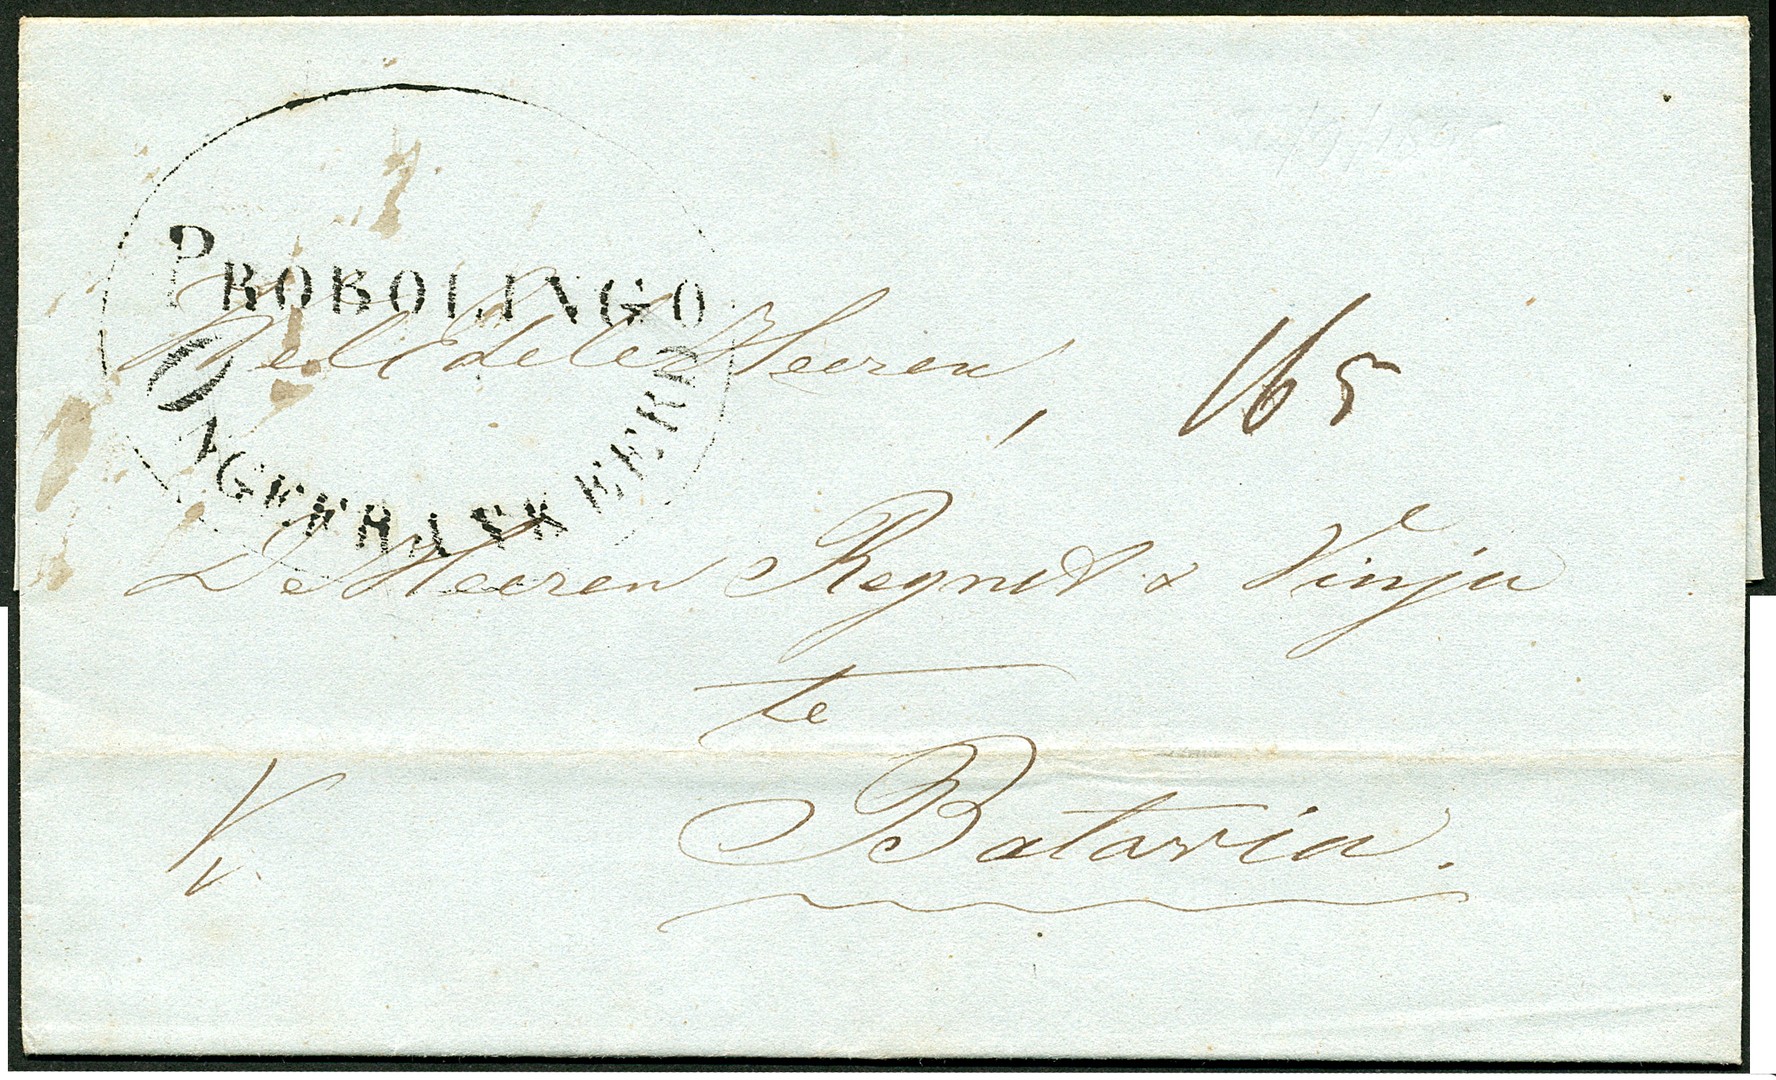 PROBOLINGO
ONGEFRANKEERD
Wel Edele Heeren,
165
De Heeren Reynst & Vinju
te
Batavia.